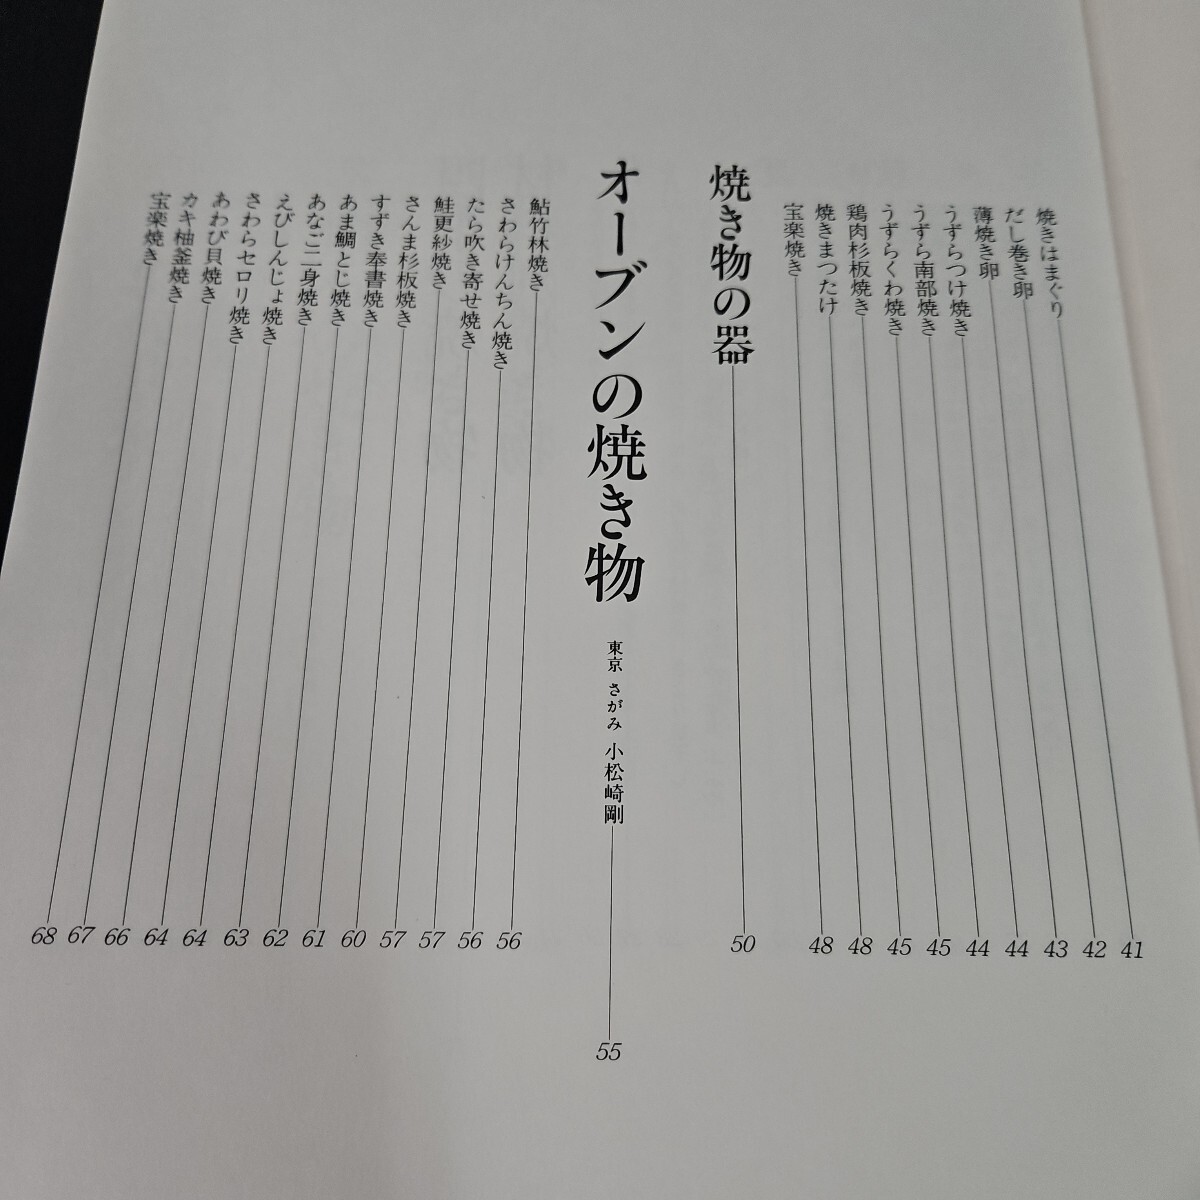 焼きはまぐり 41
だし巻き卵 42
薄焼き卵 43
うずらつけ焼き 44
うずら南部焼き 44
うずらくわ焼き 45
鶏肉杉板焼き 45
焼きまつたけ 48
宝楽焼き 48
焼き物の器 50
オーブンの焼き物 東京 さがみ 小松崎剛 55
鮎竹林焼き 56
さわらけんちん焼き 56
たら吹き寄せ焼き 57
鮭更紗焼き 57
さんま杉板焼き 60
すずき奉書焼き 61
あま鯛とじ焼き 62
あなご二身焼き 63
えびしんじょ焼き 64
さわらセロリ焼き 64
あわび貝焼き 66
カキ柚釜焼き 67
宝楽焼き 68